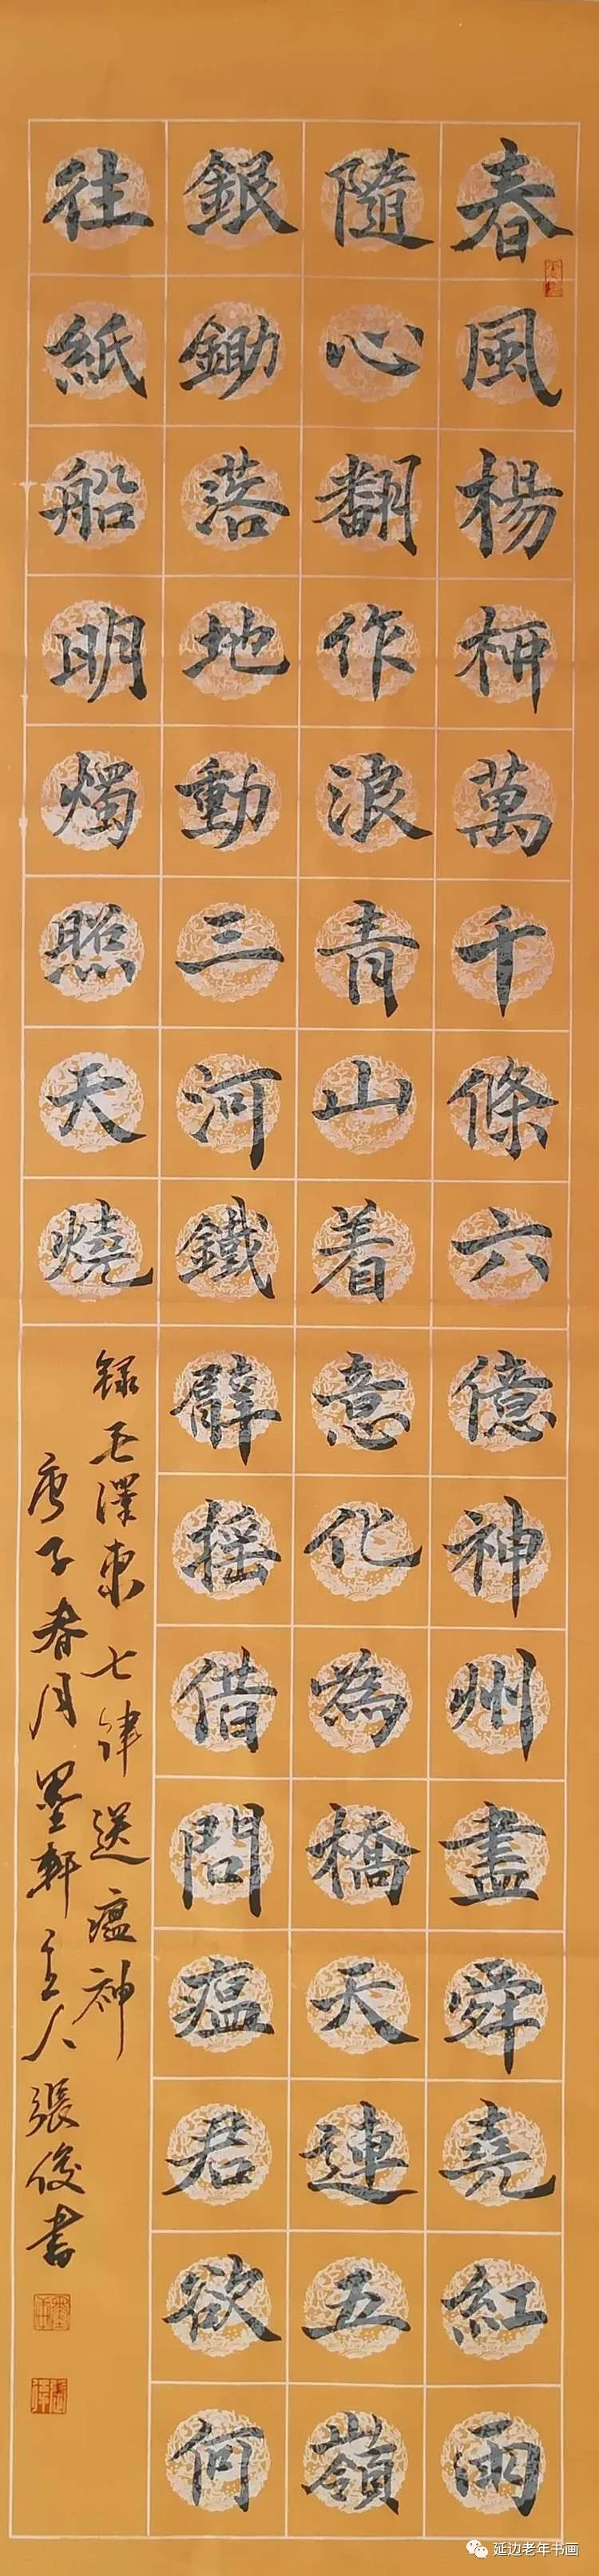 春風楊柳萬千條六億神州盡舜堯紅雨
隨心翻作浪青山着意化為橋天連五嶺
銀鋤落地動三河鐵臂摇借問瘟君欲何
往紙船明燭照天燒
録毛澤東七律送瘟神
庚子春月墨軒主人張俊書
延边老年书画